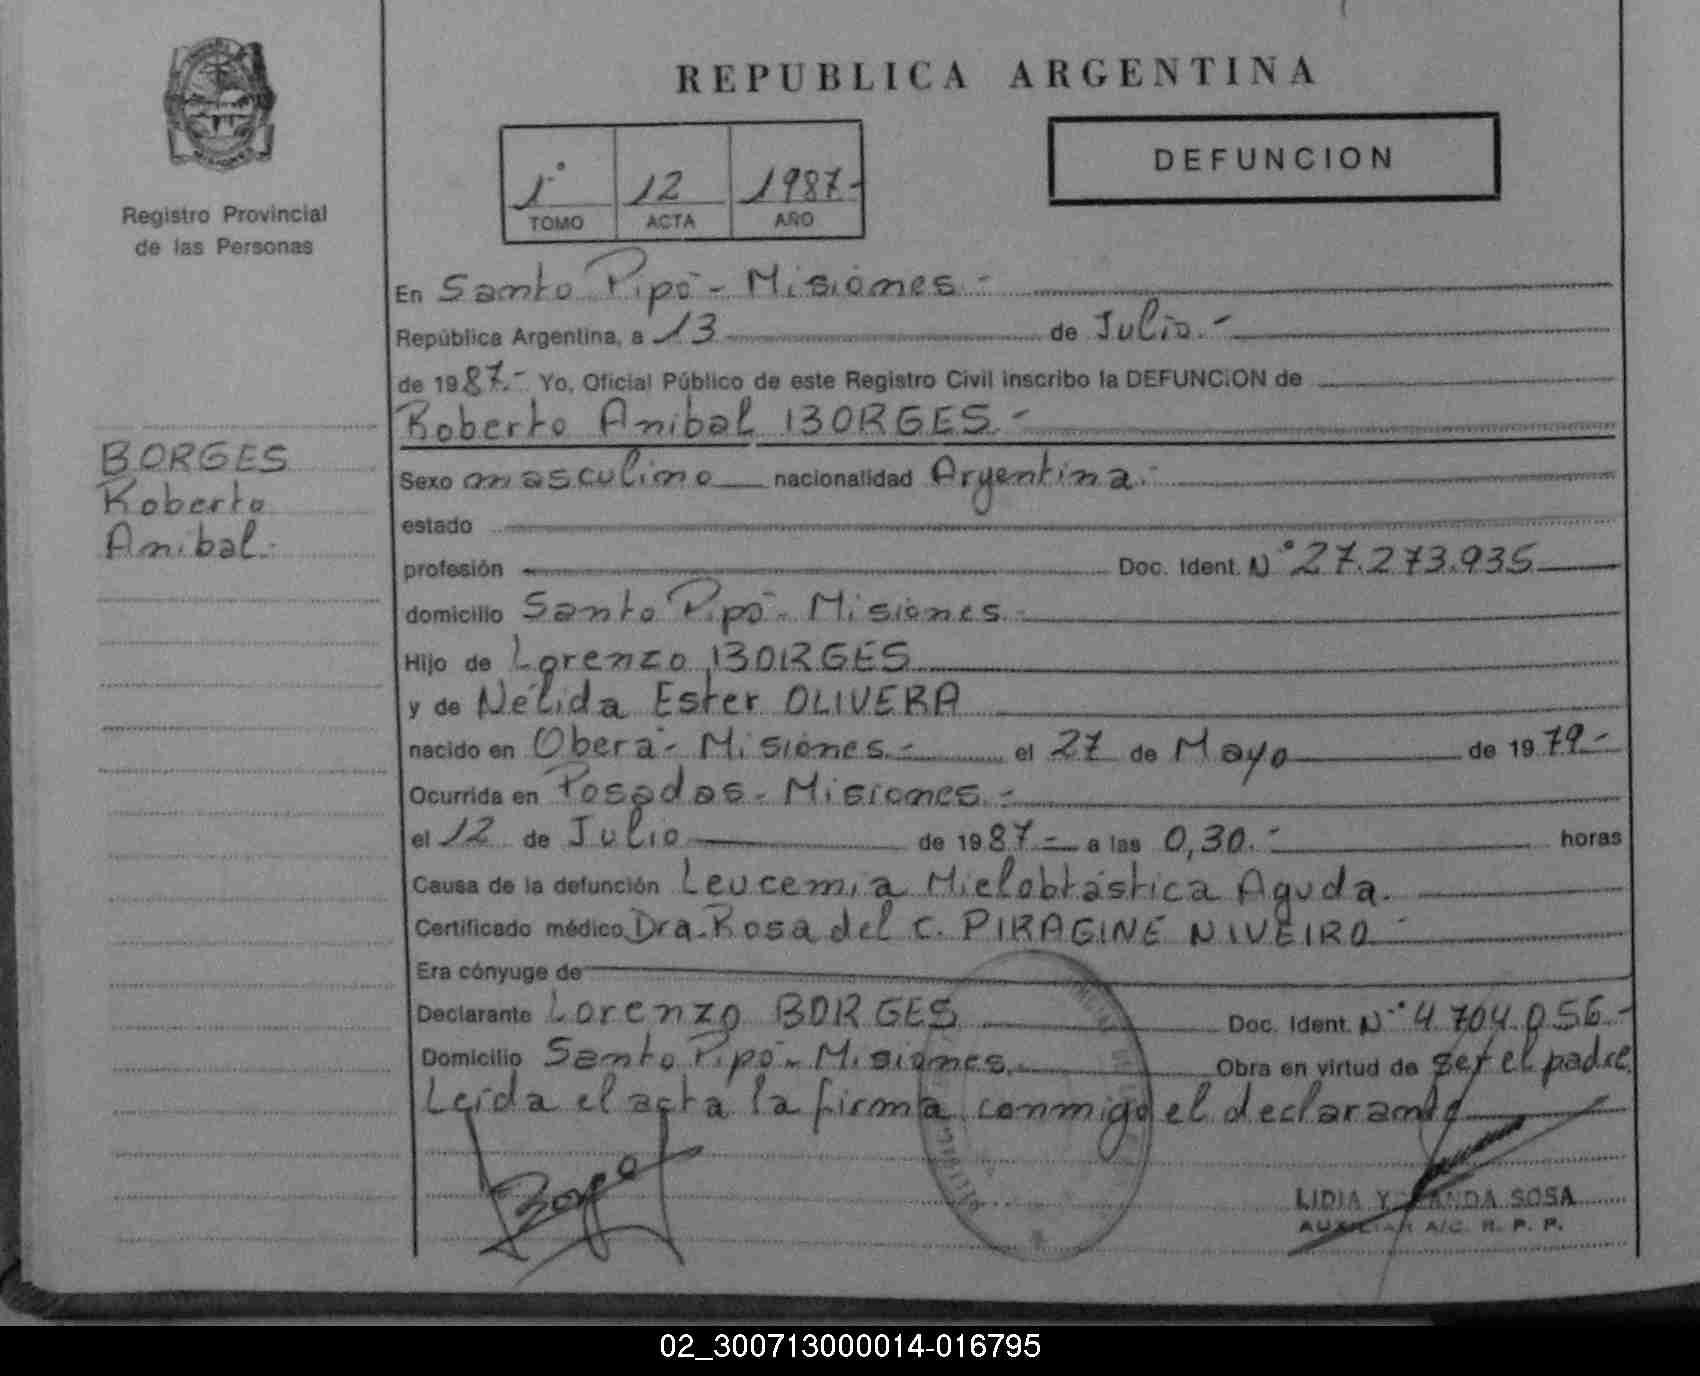 REPUBLICA ARGENTINA
MISIONES
Registro Provincial
de las Personas
1º 12 1987.-
TOMO ACTA AÑO
DEFUNCION
BORGES
Roberto
Anibal.-
En Santo Pipó - Misiones.-
República Argentina, a 13 de Julio.-
de 1987.- Yo, Oficial Público de este Registro Civil inscribo la DEFUNCION de
Roberto Anibal BORGES.-
Sexo masculino nacionalidad Argentina.-
estado
profesión Doc. Ident. Nº 27.273.935
domicilio Santo Pipó - Misiones.-
Hijo de Lorenzo BORGES
y de Nélida Ester OLIVERA
nacido en Oberá - Misiones.- el 27 de Mayo de 1979.-
Ocurrida en Posadas - Misiones.-
el 12 de Julio de 1987.- a las 0,30.- horas
Causa de la defunción Leucemia Mieloblástica Aguda.
Certificado médico Dra. Rosa del C. PIRAGINE NIVEIRO.-
Era cónyuge de
Declarante Lorenzo BORGES Doc. Ident. Nº 4.704.056.-
Domicilio Santo Pipó - Misiones.- Obra en virtud de ser el padre
Leída el acta la firma conmigo el declarante
Borges
LIDIA YOLANDA SOSA
AUXILIAR A/C. R. P. P.
02_300713000014-016795